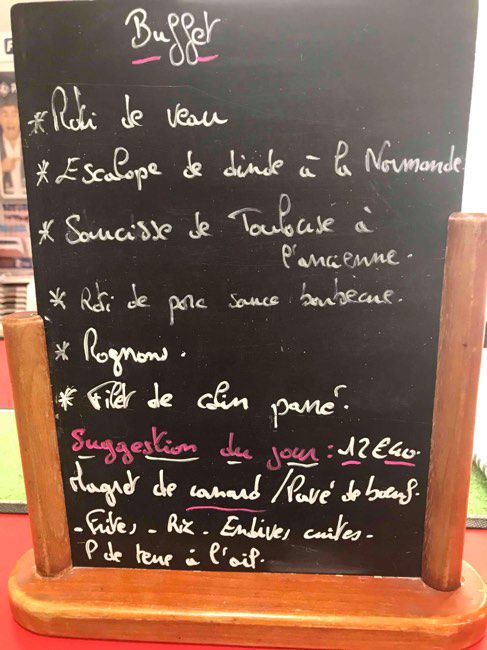 Buffet
* Rôti de veau
* Escalope de dinde à la Normande.
* Saucisse de Toulouse à
l'ancienne.
* Rôti de porc sauce barbecue.
* Rognons.
* Filet de colin pané.
Suggestion du jour : 12E40.
Magret de canard / Pavé de boeuf.
- Frites - Riz - Endives cuites -
P de terre à l'ail.